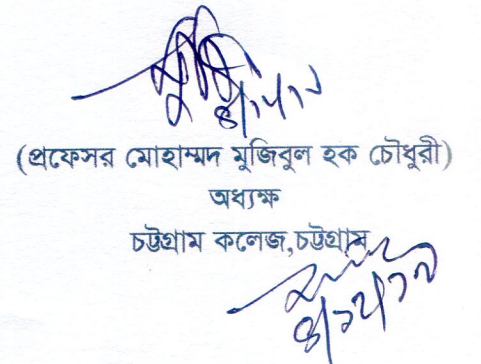 (প্রফেসর মোহাম্মদ মুজিবুল হক চৌধুরী)
অধ্যক্ষ
চট্টগ্রাম কলেজ,চট্টগ্রাম